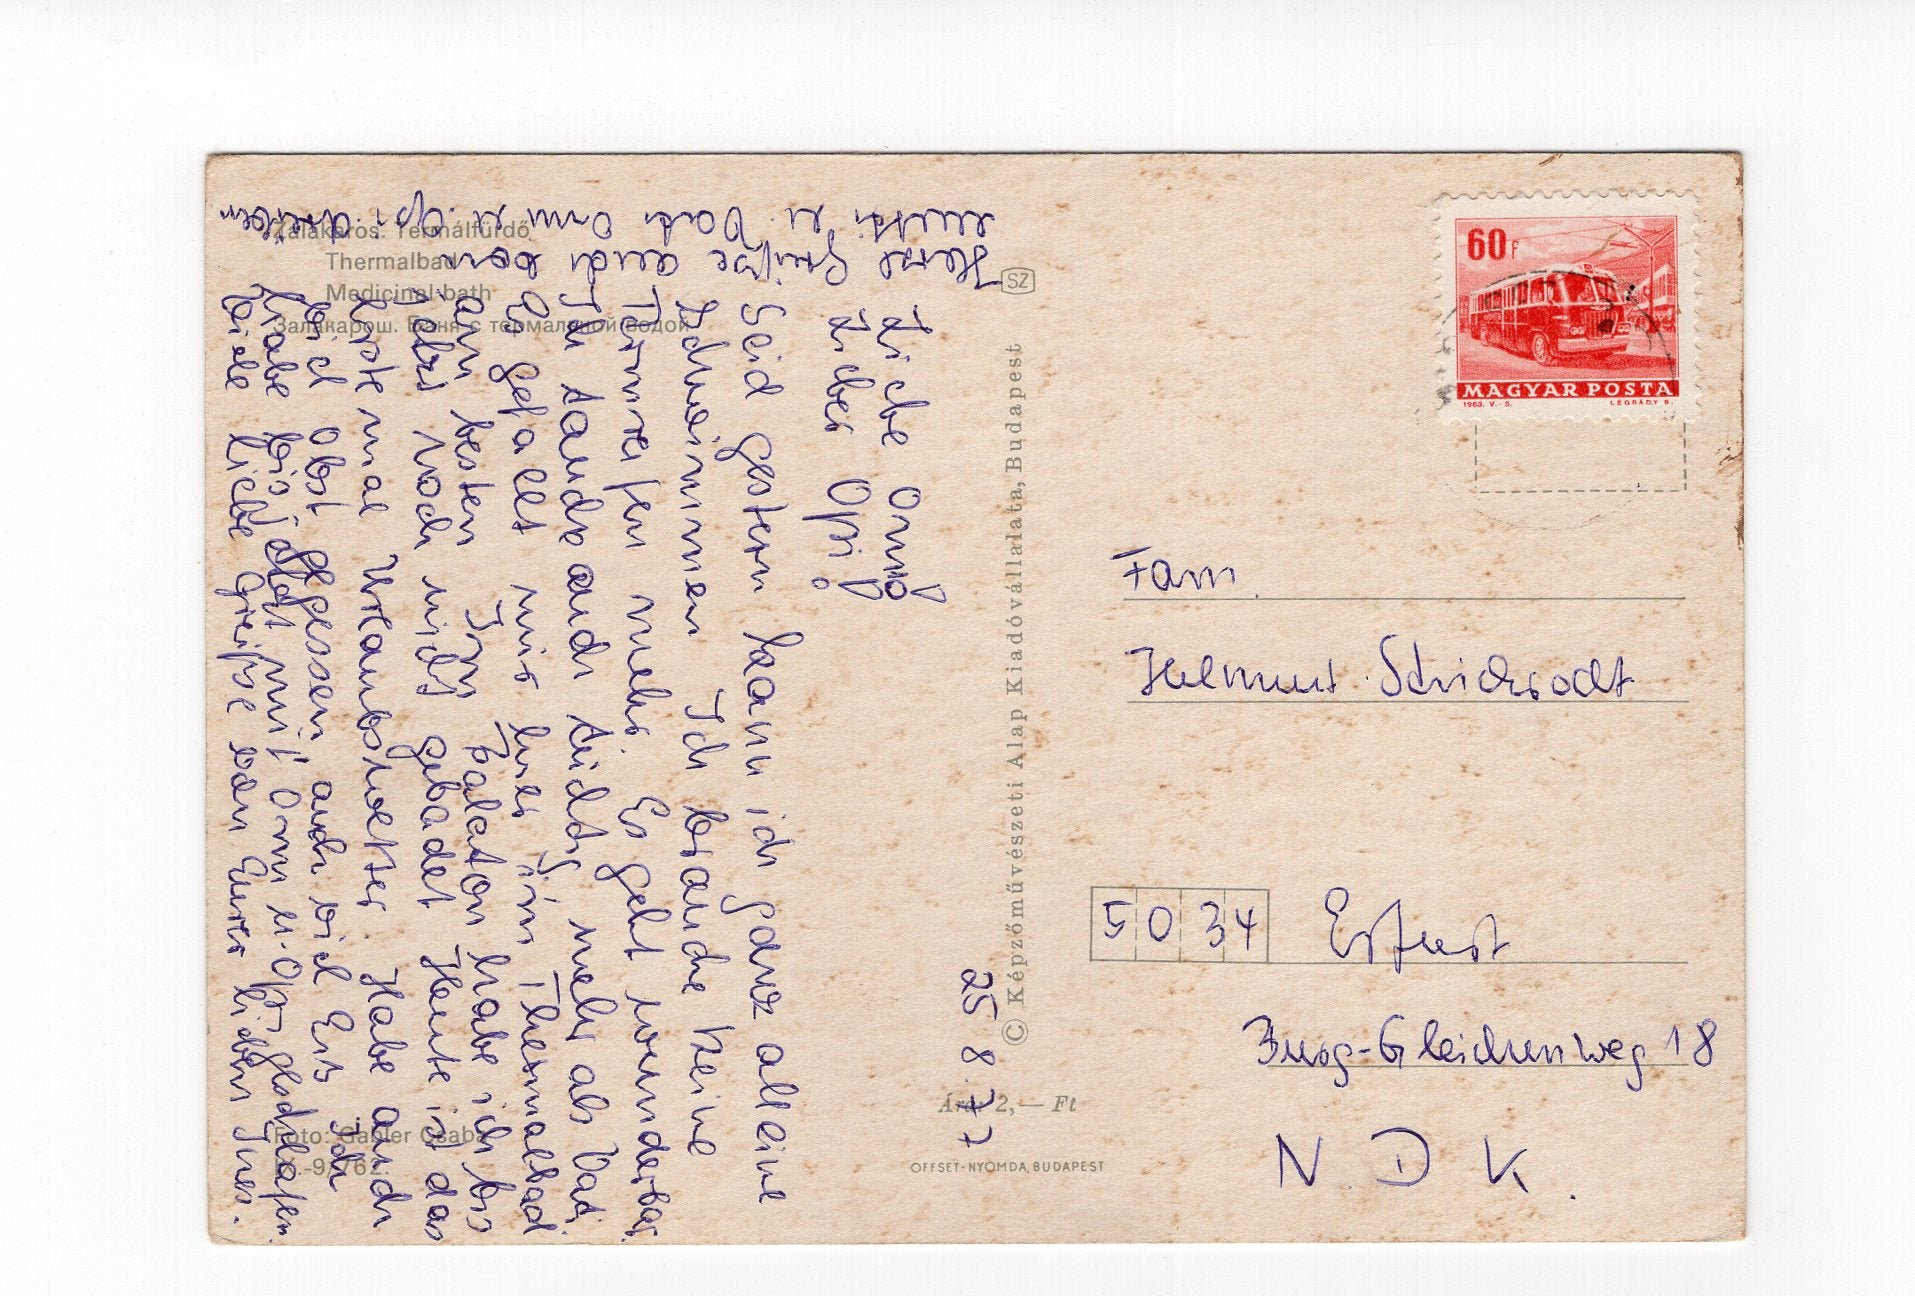 Zalakaros. Termálfürdő
Thermalbad
Medicinal bath
Залакарош. Баня с термальной водой
Foto: Gabler Csaba
SZ
© Képzőművészeti Alap Kiadóvállalata, Budapest
Ára: 2,— Ft
OFFSET-NYOMDA, BUDAPEST
25 8. 77
Liebe Omi!
Lieber Opi!
Seid gestern kann ich ganz alleine
Schwimmen Ich brauche keine
Ärmel mehr. Es geht wunderbar.
Ich tauche auch tüchtig mehr als Vati
Es gefällt mir hier im Thermalbad
am besten Im Balaton habe ich bis
jetzt noch nicht gebadet Heute ist das
erste mal Urlaubswetter. Habe auch
viel Obst gegessen auch viel Eis Ich
habe bis jetzt mit Omi u. Opi geschlafen.
Viele liebe Grüße von Eurer lieben Ines.
Herzl Grüße auch von
Mutti u. Vati Omi u. Opi
60f
MAGYAR POSTA
1963. V.-S.
LÉGRÁDY S.
Fam.
Helmut Strickrodt
5034 Erfurt
Burg-Gleichenweg 18
N D K.